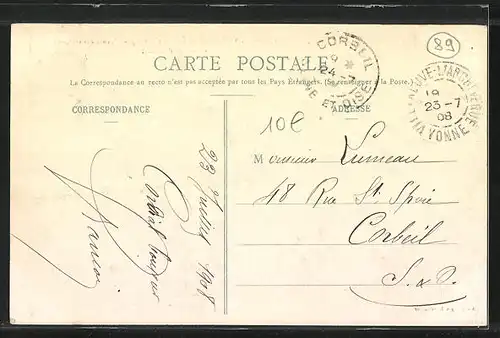 89
CARTE POSTALE
La Correspondance au recto n'est pas acceptée par tous les Pays Étrangers. (Se renseigner à la Poste.)
CORRESPONDANCE
ADRESSE
CORBEIL
9 *
24-7
ET OISE
L'ARCHEVEQUE
19
23-7
08
YONNE
10€
Monsieur Lumeau
48 Rue St. Spire
Corbeil
S. & O.
23 Juillet 1908
Cordial bonjour